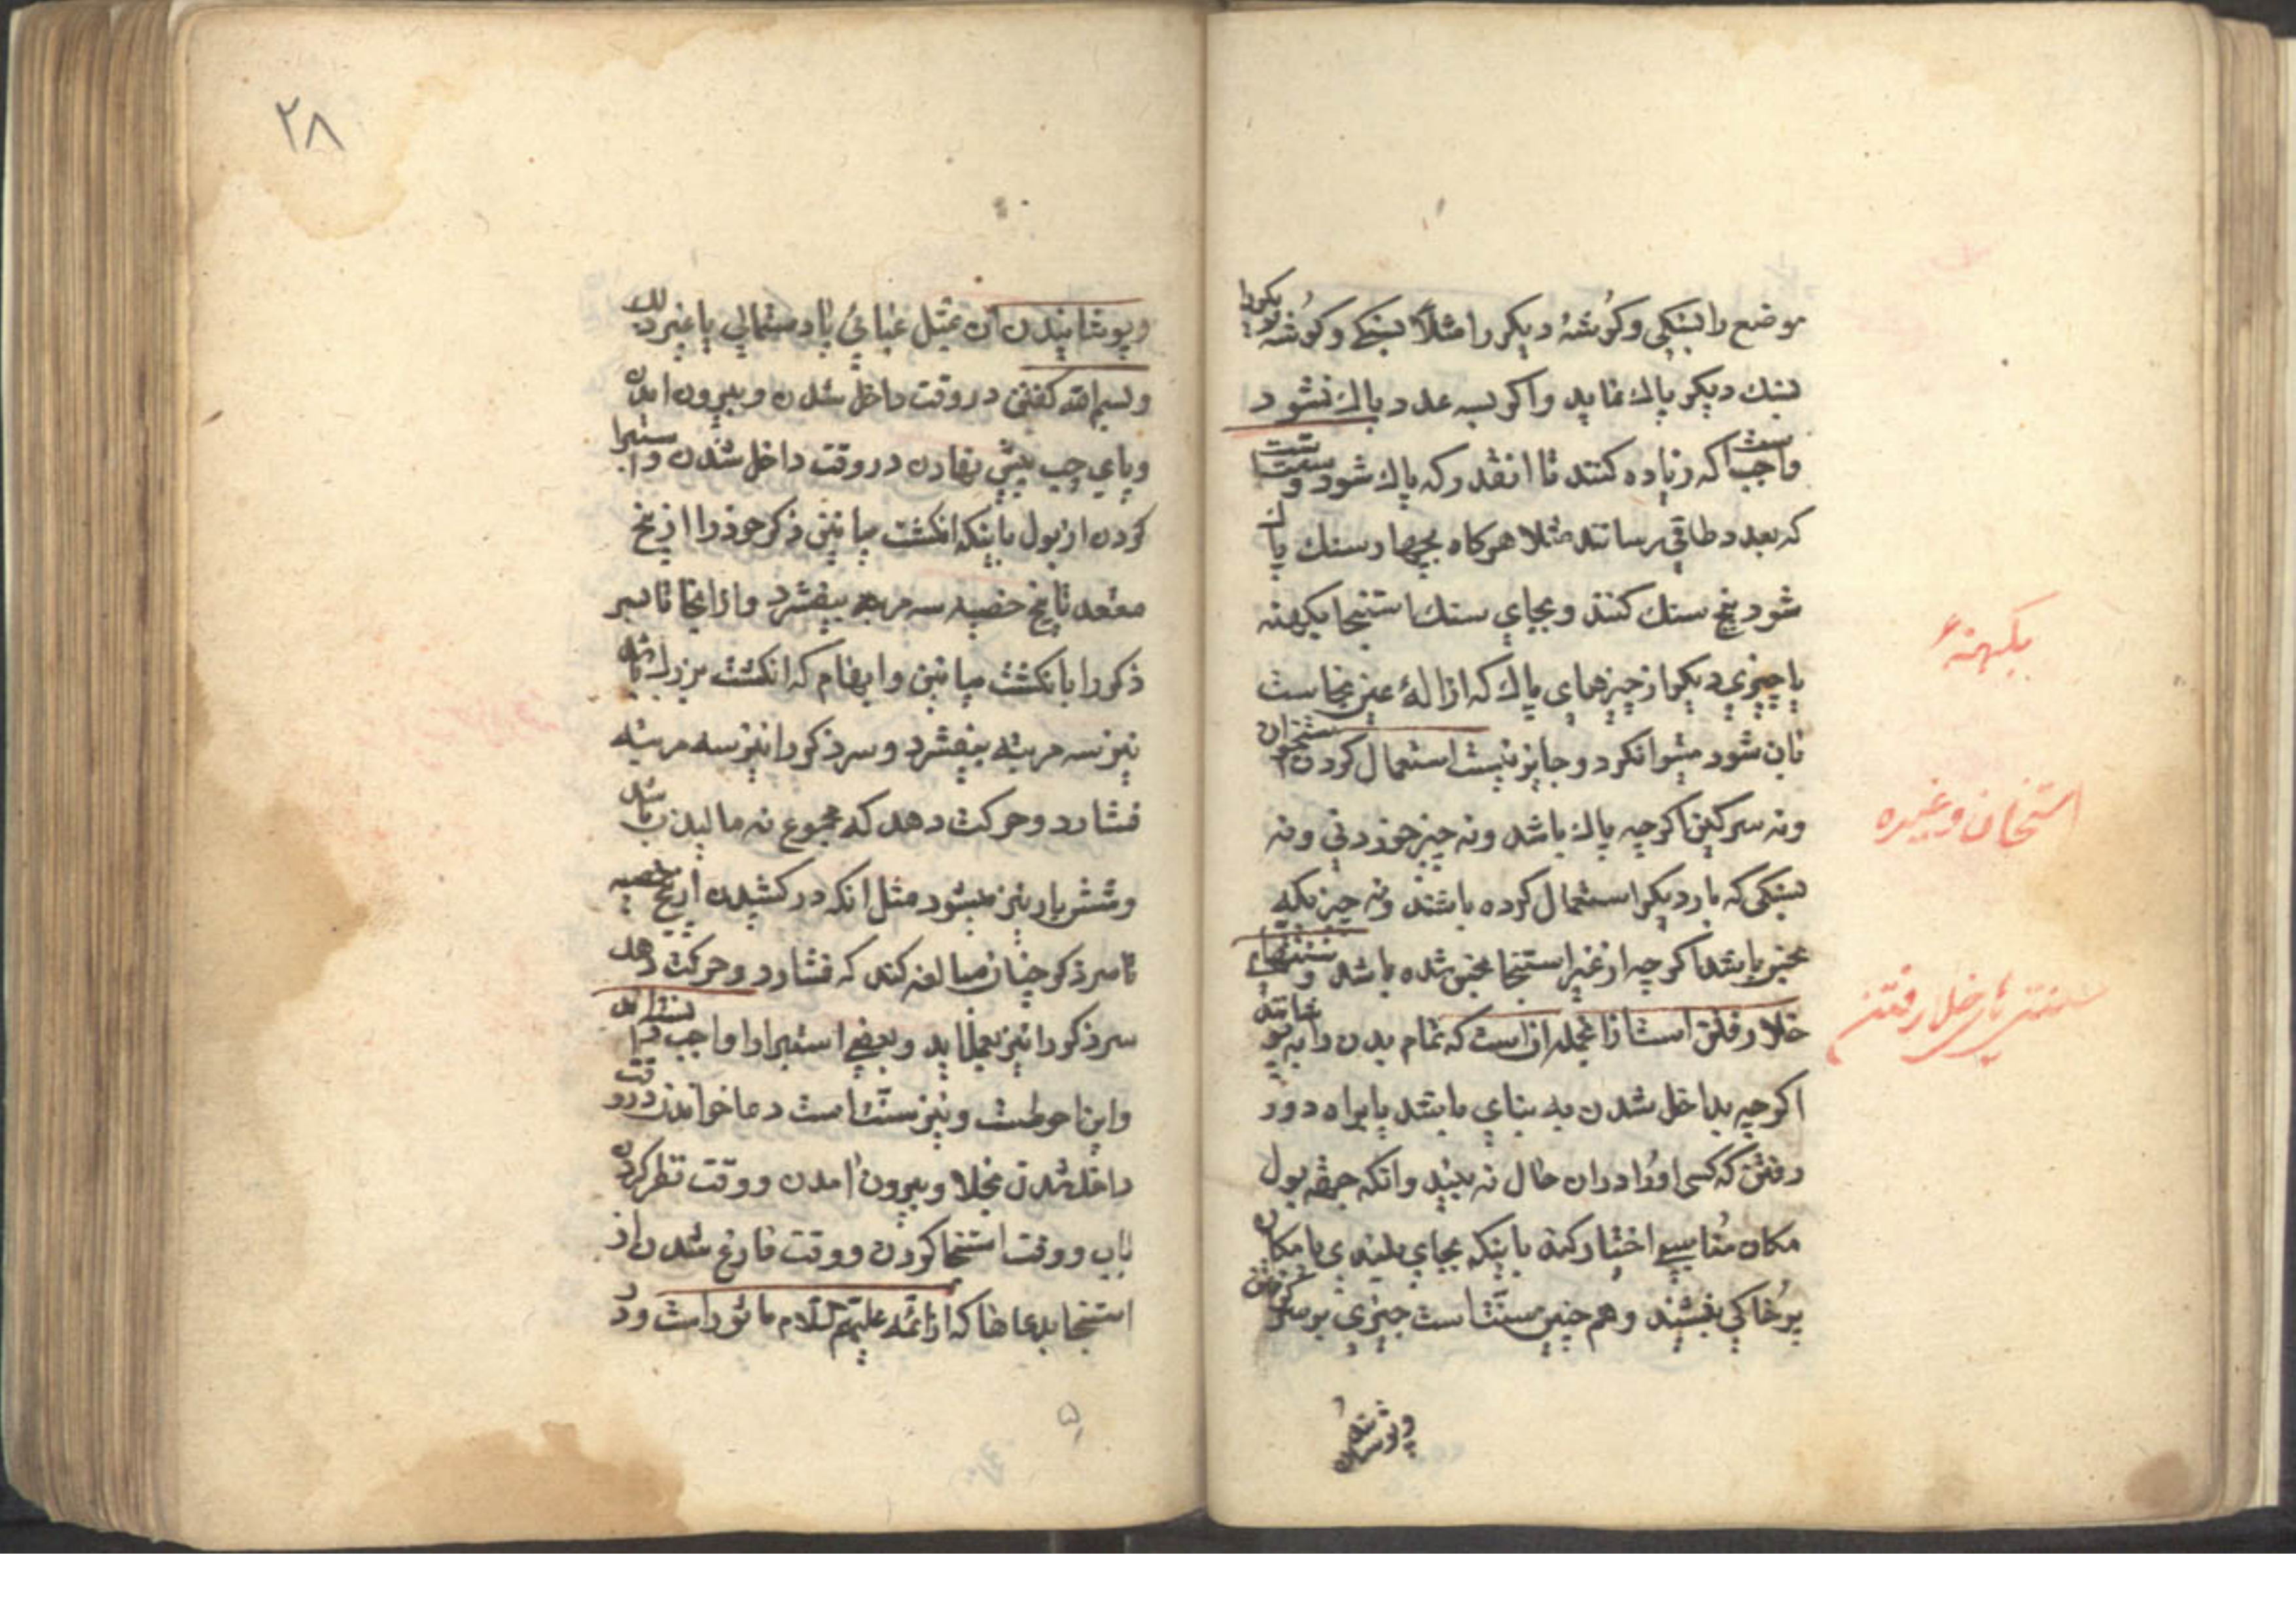 موضع را بسنکی و کوشهٔ دیکر را مثلاً بسنکی و کوشهٔ دیکر را
بسنك دیکر پاك نماید و اکر بسه عدد پاك نشود
واجبست که زیاده کنند تا انقدر که پاك شود و سنتست
که بعدد طاقی رسانند مثلا هرکاه بچهار سنك پاك
شود پنج سنك کنند و بجای سنك استنجا بکهنه
یا چیزی دیکر از چیزهای پاك که ازالهٔ عین نجاست
بان شود میتوانکرد و جایز نیست استعمال کردن استخوان
و نه سرکین اکرچه پاك باشد و نه چیز خوردنی و نه
بسنکی که بار دیکر استعمال کرده باشند و نه چیزیکه
نجس باشد اکرچه از غیر استنجا نجس شده باشد و سنتهای
خلا رفتن است از انجمله ان است که تمام بدن را بپوشانند
اکرچه بداخل شدن به بنای باشد یا براه دور
رفتن که کسی او را در ان حال نه بیند و انکه جهة بول
مکان مناسبی اختیار کند باینکه بجای بلندی یا مکان
پر خاکی بنشیند و هم چنین سنّتست چیزی بر سر کرفتن
و پوشانیدن
بکهنهٔ
استخان و غیره
سنتهای خلا رفتن
۲۸
و پوشانیدن ان بمثل عبائی یا دستمالی یا غیر ذلك
و بسم الله کفتن در وقت داخل شدن و بیرون امدن
و پای چپ پیش نهادن در وقت داخل شدن و استبرا
کردن از بول باینکه انکشت میانین ذکر خود را از بیخ
مقعد تا بیخ خصیه سه مرتبه بیفشرد و از انجا تا سر
ذکر را بانکشت میانین و ابهام که انکشت بزرك باشد
نیز سه مرتبه بیفشرد و سر ذکر را نیز سه مرتبه
فشارد و حرکت دهد که مجموع نه مالیدن باشد
و شش بار نیز میشود مثل انکه در کشیدن از بیخ خصیه
تا سر ذکر چنان مبالغه کند که فشارد و حرکت دهد
سر ذکر را نیز بعمل اید و بعضی استبرا را واجب دانسته اند
و این احوطست و نیز سنّت است دعا خواندن در وقت
داخل شدن بخلا و بیرون امدن و وقت نظر کردن
باب و وقت استنجا کردن و وقت فارغ شدن از
استنجا بدعاها که از ائمّه علیهم السّلام ماثور است و در
۵